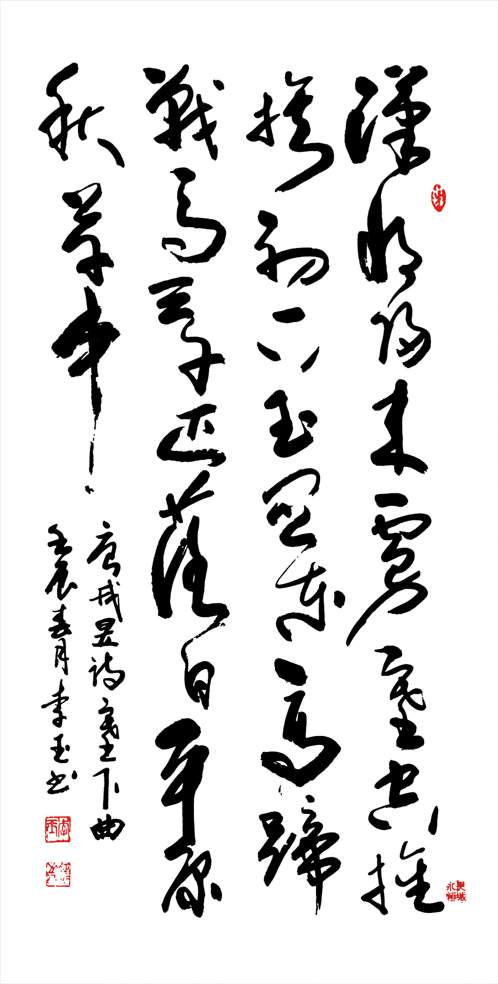 漢将归来虜塞空旌
旗初下玉关东高蹄
戰马三千匹落日平原
秋草中
唐戎昱诗塞下曲
壬辰春月李玉书